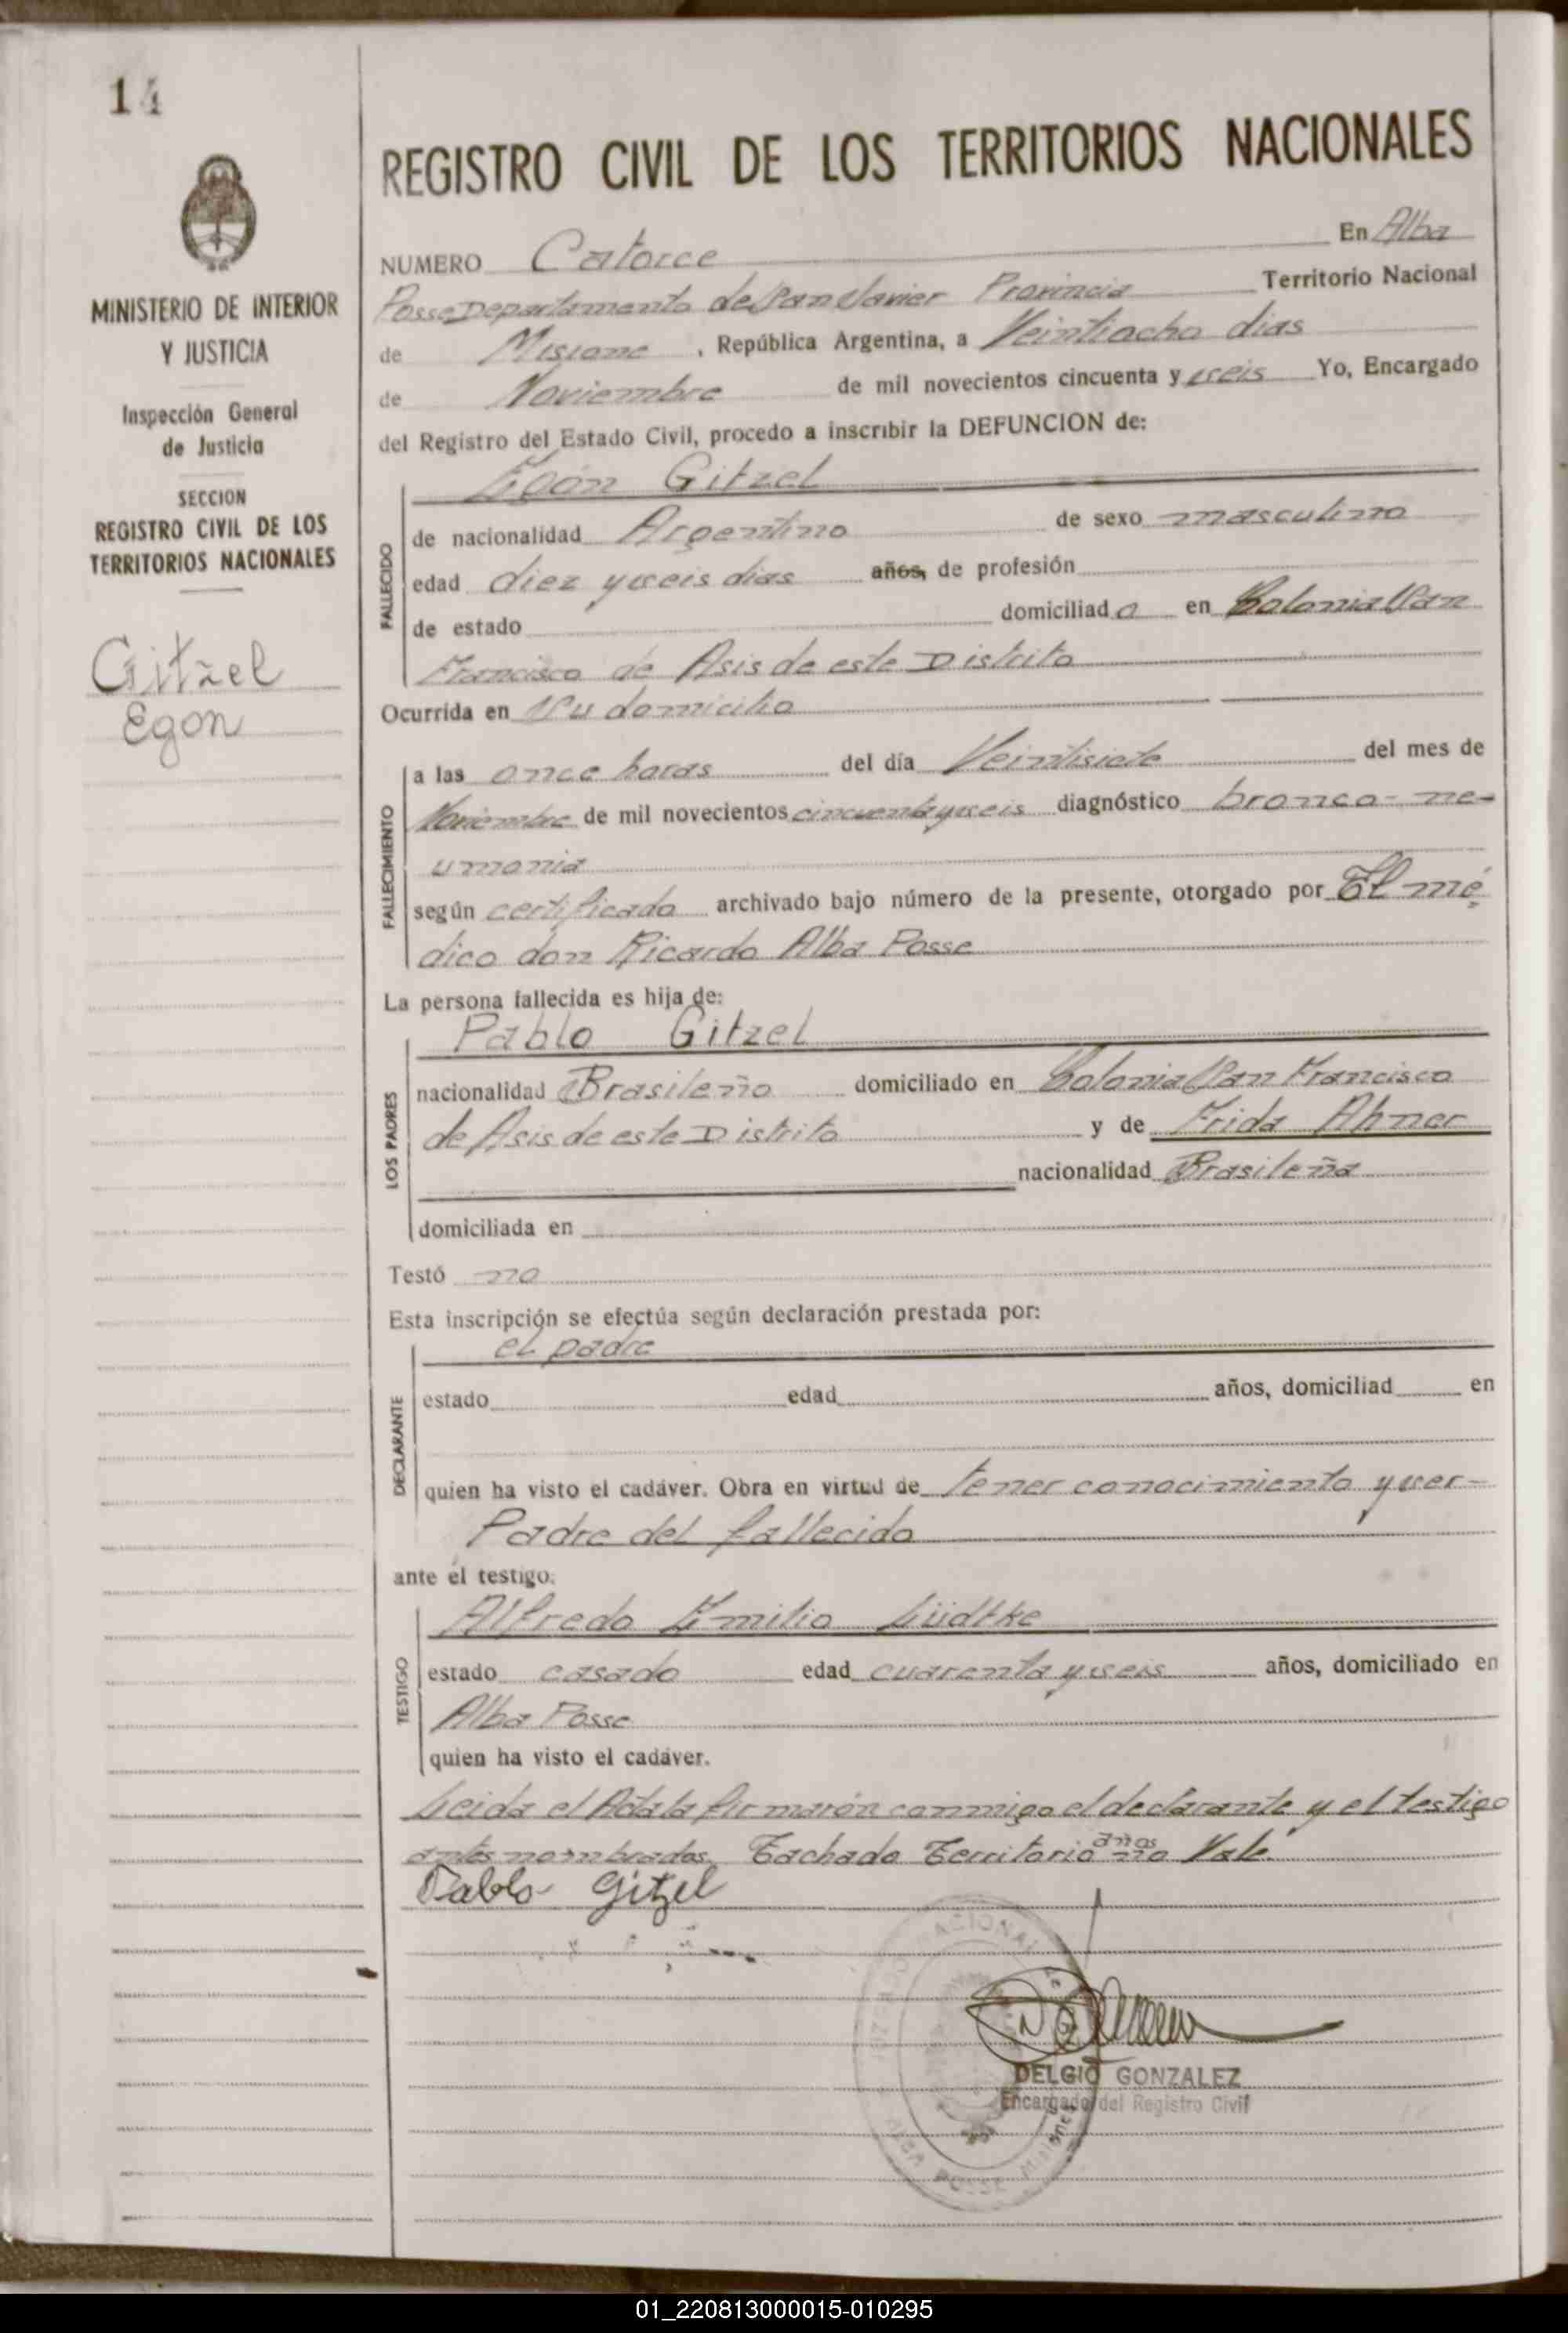 14
MINISTERIO DE INTERIOR
Y JUSTICIA
Inspección General
de Justicia
SECCION
REGISTRO CIVIL DE LOS
TERRITORIOS NACIONALES
Gitzel
Egon
REGISTRO CIVIL DE LOS TERRITORIOS NACIONALES
NUMERO Catorce En Alba
Posse Departamento de San Javier Provincia Territorio Nacional
de Misione , República Argentina, a Veintiocho dias
de Noviembre de mil novecientos cincuenta y seis Yo, Encargado
del Registro del Estado Civil, procedo a inscribir la DEFUNCION de:
Egón Gitzel
FALLECIDO
de nacionalidad Argentino de sexo masculino
edad diez y seis dias años, de profesión
de estado domiciliado en Colonia San
Francisco de Asis de este Distrito
Ocurrida en Su domicilio
FALLECIMIENTO
a las once horas del día Veintisiete del mes de
Noviembre de mil novecientos cincuenta y seis diagnóstico bronco-ne-
umonia
según certificado archivado bajo número de la presente, otorgado por El mé
dico don Ricardo Alba Posse
La persona fallecida es hija de:
LOS PADRES
Pablo Gitzel
nacionalidad Brasileño domiciliado en Colonia San Francisco
de Asis de este Distrito y de Frida Ahner
nacionalidad Brasileña
domiciliada en
Testó no
Esta inscripción se efectúa según declaración prestada por:
DECLARANTE
el padre
estado edad años, domiciliad en
quien ha visto el cadáver. Obra en virtud de tener conocimiento y ser-
Padre del fallecido
ante el testigo:
TESTIGO
Alfredo Emilio Lüdtke
estado casado edad cuarenta y seis años, domiciliado en
Alba Posse
quien ha visto el cadáver.
Leida el Acta la firmarón conmigo el declarante y el testigo
antes nombrados. Tachado Territorio años no Vale.
Pablo Gitzel
DELGIO GONZALEZ
Encargado del Registro Civil
ALBA POSSE Misiones
01_220813000015-010295